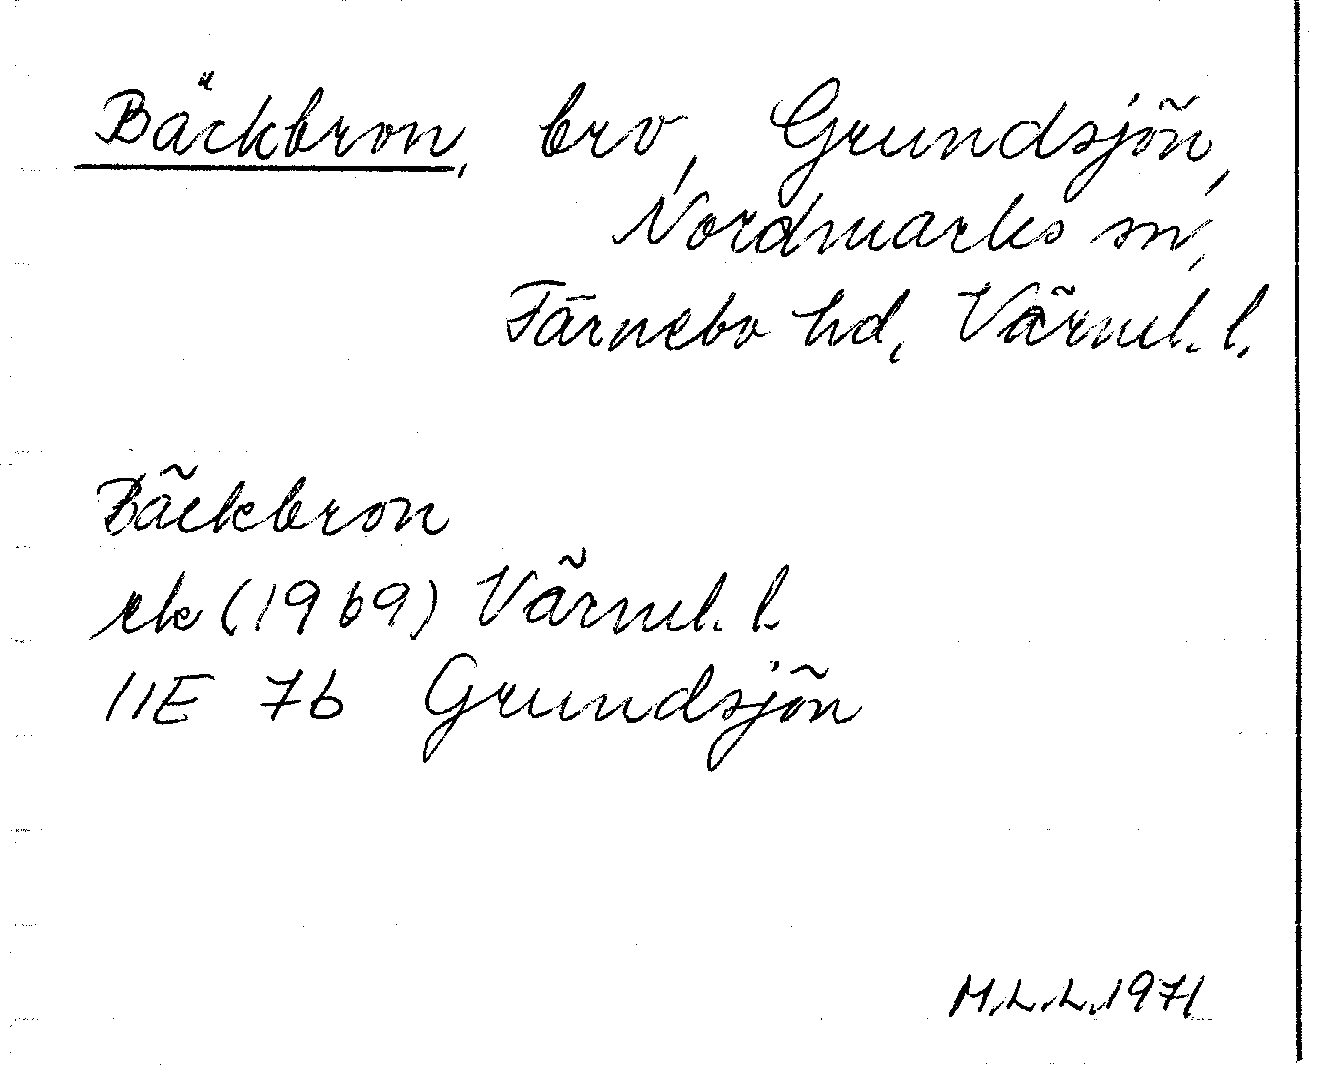 Bäckbron, bro, Grundsjön,
Nordmarks sn,
Färnebo hd, Värml. l.
Bäckbron
rk (1969) Värml. l.
11E 7b Grundsjön
M.L.L. 1971